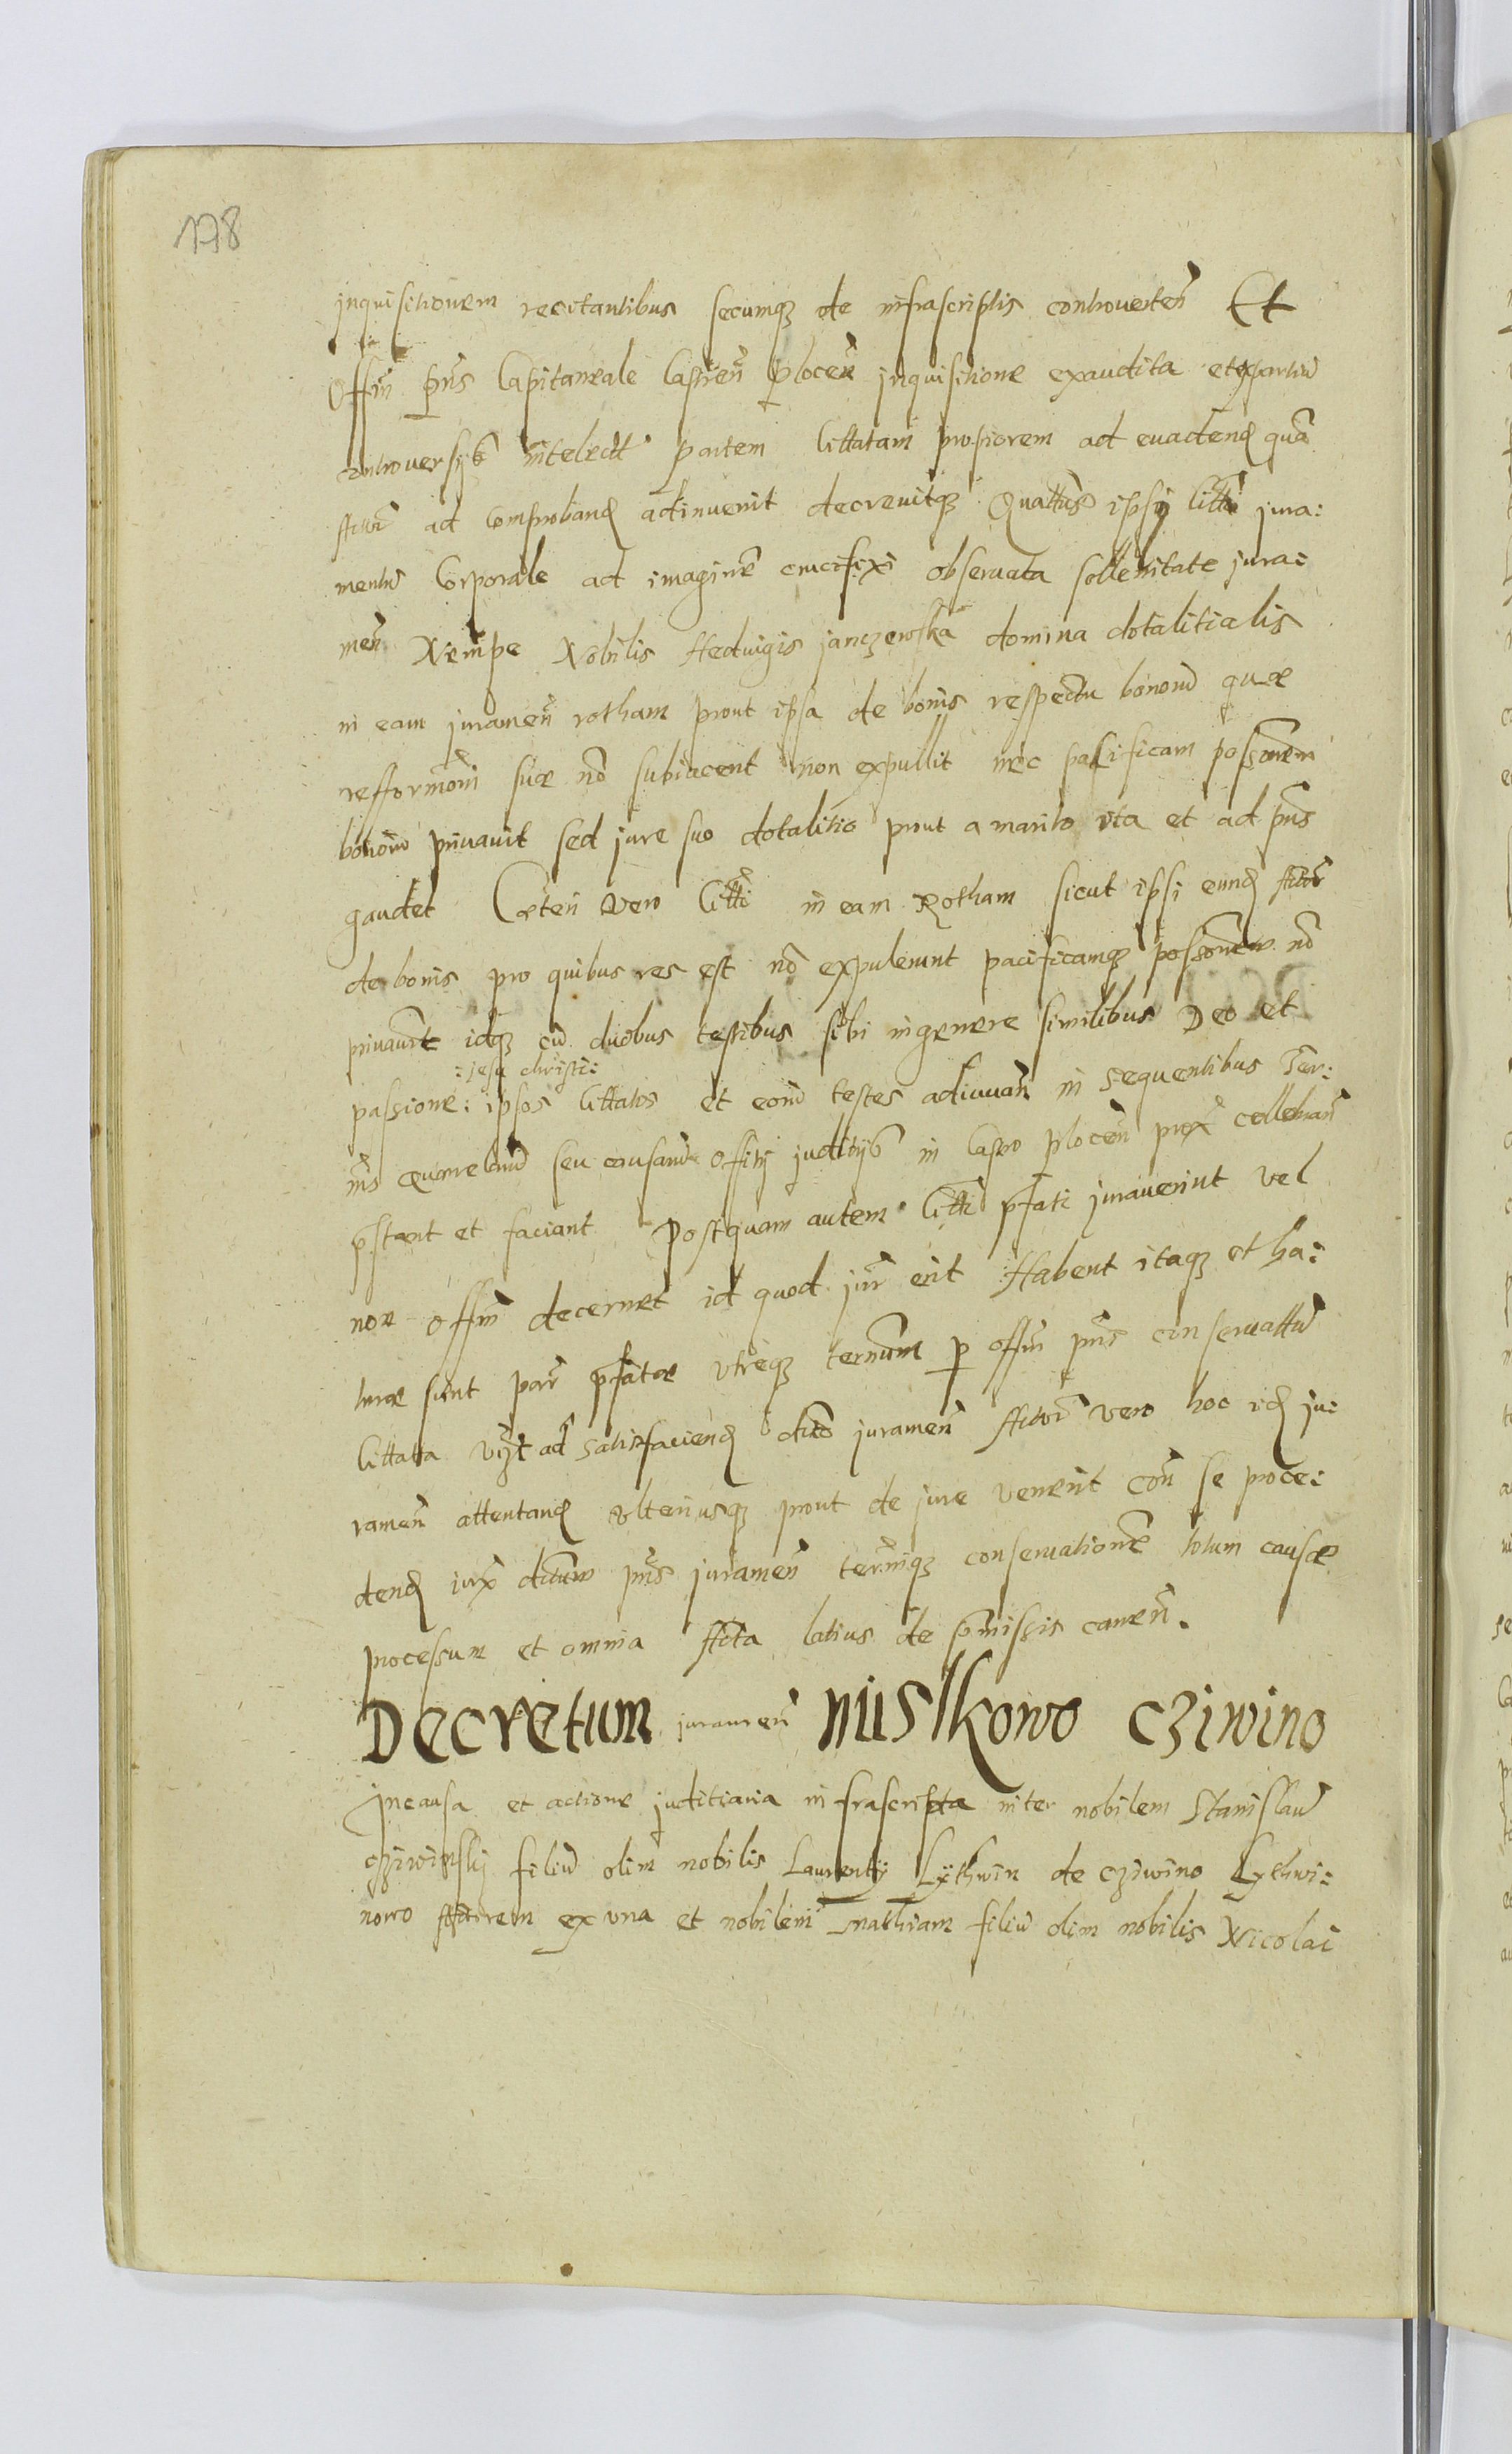 178
inquisitionem recitantibus secumq3 de infrascriptis controverteñ Et
Offiũ pñs Capitaneale Castreñ plocẽn inquisitione exaudita et partiũ
controversijs intelectt partem Cittatam propiorem ad euadend quã
Actor̃ ad comproband adinuenit decreuitq3 Quattus ipsj Citti jura:
mentũ Corporale ad imaginẽ crucifixi obseruata sollenitate jura:
meñ Nempe Nobilis Heduigis janczewska domina dotalitialis
in eam jurameñ rotham prout ipsa de bonis respectu bonorũ quæ
refformõni suæ nõ subiacent non expullit nec pacificam possonem
bonorũ priuauit sed jure suo dotalitio prout a marito ita et ad pñs
gaudet Cæteri vero Citti in eam Rotham sicut ipsi eund Actor̃
de bonis pro quibus res est nõ expulerunt pacificamq3 possonem nõ
priuaurt idq3 cũ duobus testibus sibi in genere similibus Deo et
:jesu christi:
passione: ipsos Cittatos et eorũ testes adiuuañ in sequentibus Ter:
mis quærelarũ seu causarũ Offitij juditijs in Castro plocẽn prox cellebrañ
pstent et faciant Postquam autem Citti pfati jurauerint vel
non Offiũ decernet id quod jur̃ erit Habent itaq3 et ha:
turæ sunt par̃ pfatæ vtreq3 terminum p offiũ pñs conseruattũ
Cittata vi3t ad satisfaciend dicto jurameñ Actor̃ vero hoc id ju:
rameñ attentand vlteriusq3 prout de jure venerit Cõn se proce:
dend jux dictum pñs jurameñ termiq3 conseruationẽ totum causæ
processum et omnia Acta latius de pmissis caneñ.
Decretum jurameñ Mislkowo Cziwino
In causa et actione juditiaria infrascripta inter nobilem Stanislaũ
Cziwinskj filiũ olim nobilis Laurentij Lythwin de Cziwino Lythwi:
nowo Actorem ex vna et nobilem Mathiam filiũ olim nobilis Nicolai